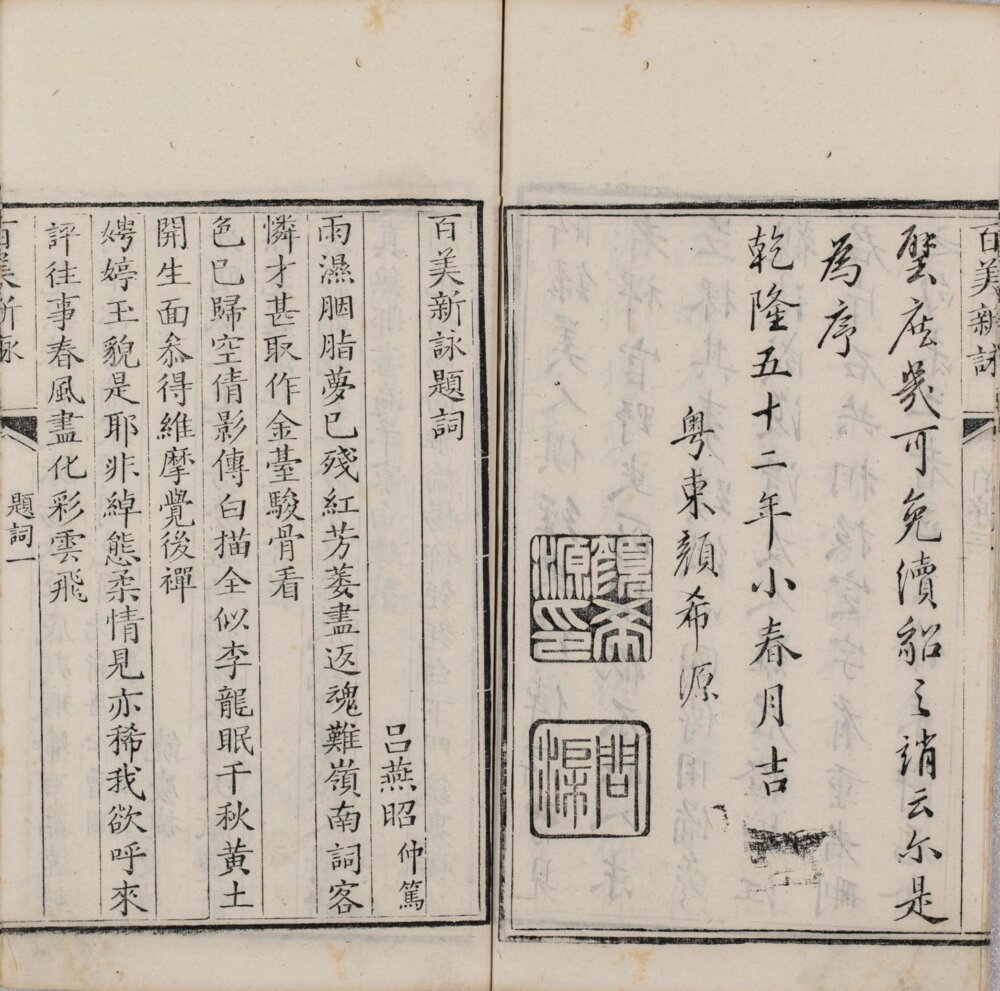 百美新詠
璧庶幾可免續貂之誚云尔是
為序
乾隆五十二年小春月吉
粵東顏希源
顏希源印
問渠
百美新詠題詞
呂燕昭仲篤
雨濕胭脂夢已殘紅芳萎盡返魂難嶺南詞客
憐才甚取作金臺駿骨看
色已歸空倩影傳白描全似李龍眠千秋黃土
開生面叅得維摩覺後禪
娉婷玉貌是耶非綽態柔情見亦稀我欲呼來
評往事春風盡化彩雲飛
百美新詠
題詞一